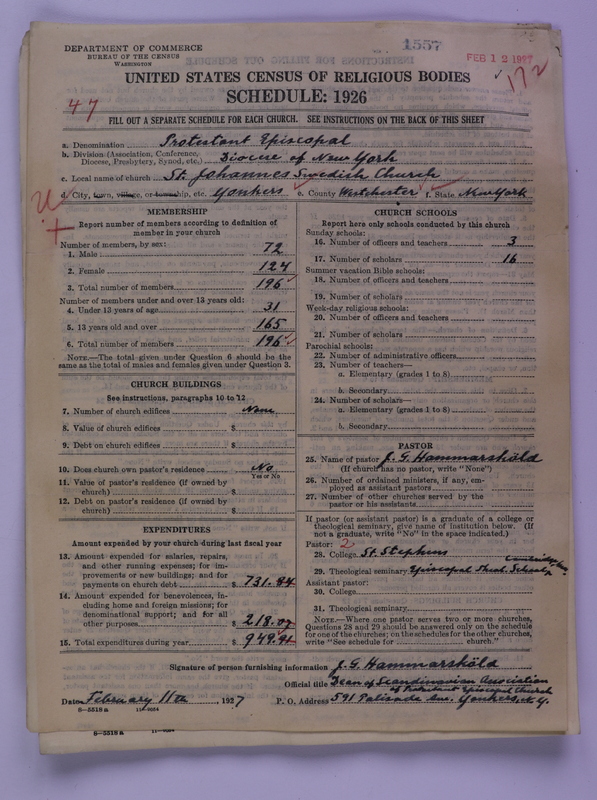 DEPARTMENT OF COMMERCE
BUREAU OF THE CENSUS
WASHINGTON
1557
FEB 12 1927
172
UNITED STATES CENSUS OF RELIGIOUS BODIES
SCHEDULE: 1926
47
FILL OUT A SEPARATE SCHEDULE FOR EACH CHURCH. SEE INSTRUCTIONS ON THE BACK OF THIS SHEET
a. Denomination Protestant Episcopal
b. Division (Association, Conference, Diocese, Presbytery, Synod, etc.) Diocese of New York
c. Local name of church St. Johannes Swedish Church
d. City, town, village, or township, etc. Yonkers e. County Westchester f. State New York
MEMBERSHIP
Report number of members according to definition of member in your church
Number of members, by sex:
1. Male 72
2. Female 124
3. Total number of members 196
Number of members under and over 13 years old:
4. Under 13 years of age 31
5. 13 years old and over 165
6. Total number of members 196
NOTE.—The total given under Question 6 should be the same as the total of males and females given under Question 3.
CHURCH BUILDINGS
See instructions, paragraphs 10 to 12
7. Number of church edifices None
8. Value of church edifices $
9. Debt on church edifices $
10. Does church own pastor's residence No
Yes or No
11. Value of pastor's residence (if owned by church) $
12. Debt on pastor's residence (if owned by church) $
EXPENDITURES
Amount expended by your church during last fiscal year
13. Amount expended for salaries, repairs, and other running expenses; for improvements or new buildings; and for payments on church debt $ 731.84
14. Amount expended for benevolences, including home and foreign missions; for denominational support; and for all other purposes $ 218.07
15. Total expenditures during year $ 949.91
CHURCH SCHOOLS
Report here only schools conducted by this church
Sunday schools:
16. Number of officers and teachers 3
17. Number of scholars 16
Summer vacation Bible schools:
18. Number of officers and teachers
19. Number of scholars
Week-day religious schools:
20. Number of officers and teachers
21. Number of scholars
Parochial schools:
22. Number of administrative officers
23. Number of teachers—
a. Elementary (grades 1 to 8)
b. Secondary
24. Number of scholars—
a. Elementary (grades 1 to 8)
b. Secondary
PASTOR
25. Name of pastor J. G. Hammarsköld
(If church has no pastor, write "None")
26. Number of ordained ministers, if any, employed as assistant pastors
27. Number of other churches served by the pastor or his assistants
If pastor (or assistant pastor) is a graduate of a college or theological seminary, give name of institution below. (If not a graduate, write "No" in the space indicated.)
Pastor: 2
28. College St. Stephens
29. Theological seminary Episcopal Theol. School
Assistant pastor:
30. College
31. Theological seminary
NOTE.—Where one pastor serves two or more churches, Questions 28 and 29 should be answered only on the schedule for one of the churches; on the schedules for the other churches, write "See schedule for church."
Signature of person furnishing information J. G. Hammarsköld
Official title Dean of Scandinavian Association
of Protestant Episcopal Church
Date February 11th, 1927 P. O. Address 591 Palisade Ave. Yonkers, N.Y.
8—5518a 11—9064
8—5518a 11—9064